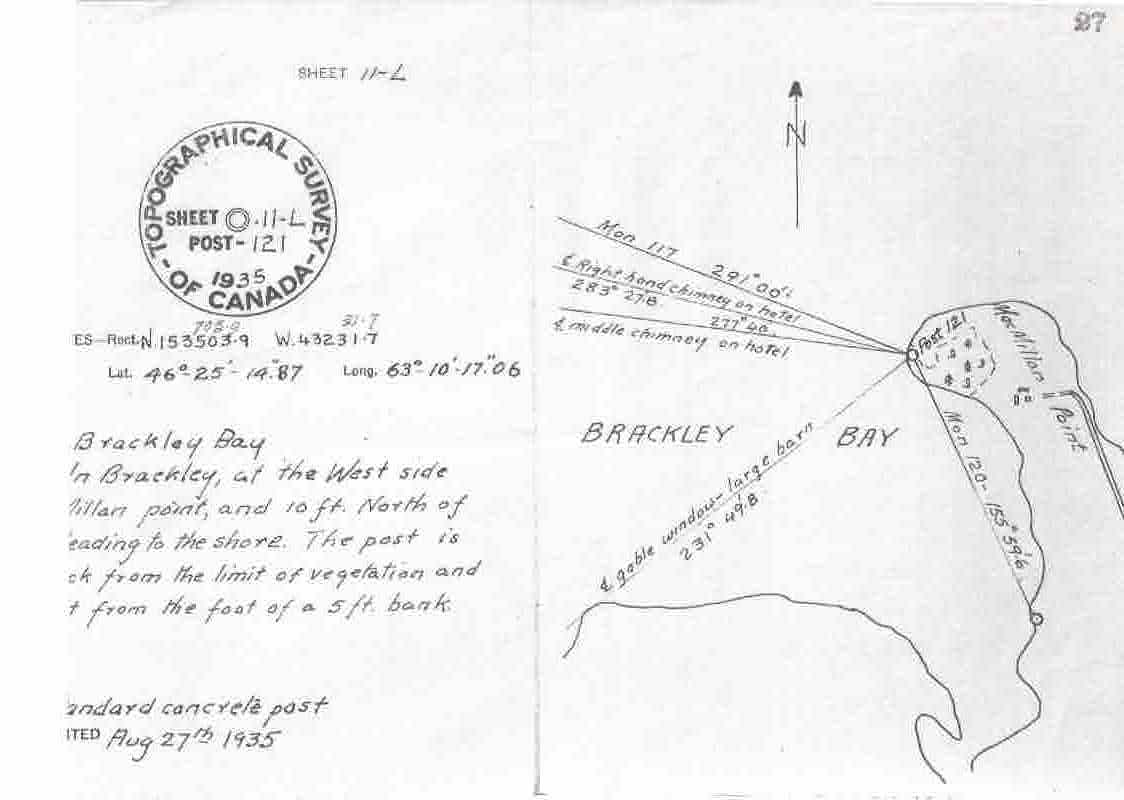 27
SHEET 11-L
TOPOGRAPHICAL SURVEY
- OF CANADA -
SHEET 11-L
POST - 121
1935
703.9 31.7
ES - Rect. N. 153503.9 W. 43231.7
Lat. 46° - 25' - 14."87 Long. 63° - 10' - 17."06
Brackley Bay
'n Brackley, at the West side
Millan point, and 10 ft. North of
eading to the shore. The post is
ck from the limit of vegetation and
t from the foot of a 5 ft. bank.
andard concrete post
ITED Aug 27th 1935
N
Mon 117 291° 00'.1
℄ Right hand chimney on hotel
283° 27.8
277° 40
℄ middle chimney on hotel
Post 121
MacMillan Point
BRACKLEY BAY
℄ gable window - large barn
231° 49'.8
Mon 120 - 155° 39'.6